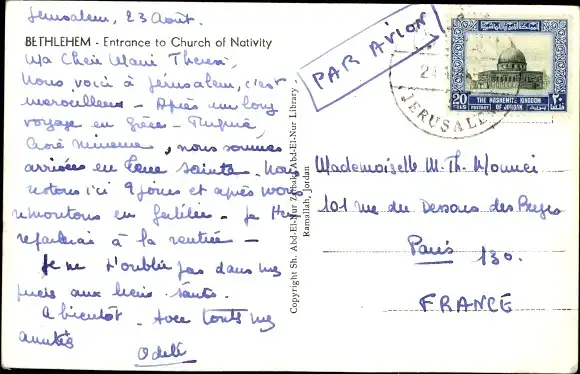 Jerusalem, 23 Août.
BETHLEHEM - Entrance to Church of Nativity
Ma Chère Marie Thérèse,
Nous voici à Jérusalem, c'est
merveilleux - Après un long
voyage en Grèce - Turquie,
Asie Mineure, nous sommes
arrivées en Terre Sainte. Nous
restons ici 9 jours et après nous
remontons en Galilée - Je te
reparlerai à la rentrée -
Je ne t'oublie pas dans mes
prières aux lieux saints.
A bientôt. Avec toutes mes
amitiés
Odile
Copyright Sh. Abd-El-Nur Abd-El-Nur Library
Ramallah, Jordan
PAR AVION
JERUSALEM
20
FILS
THE HASHEMITE KINGDOM
OF JORDAN
POSTAGE
٢٠
Mademoiselle M. Th.
101 rue du Dessous des Berges
Paris 13o.
FRANCE